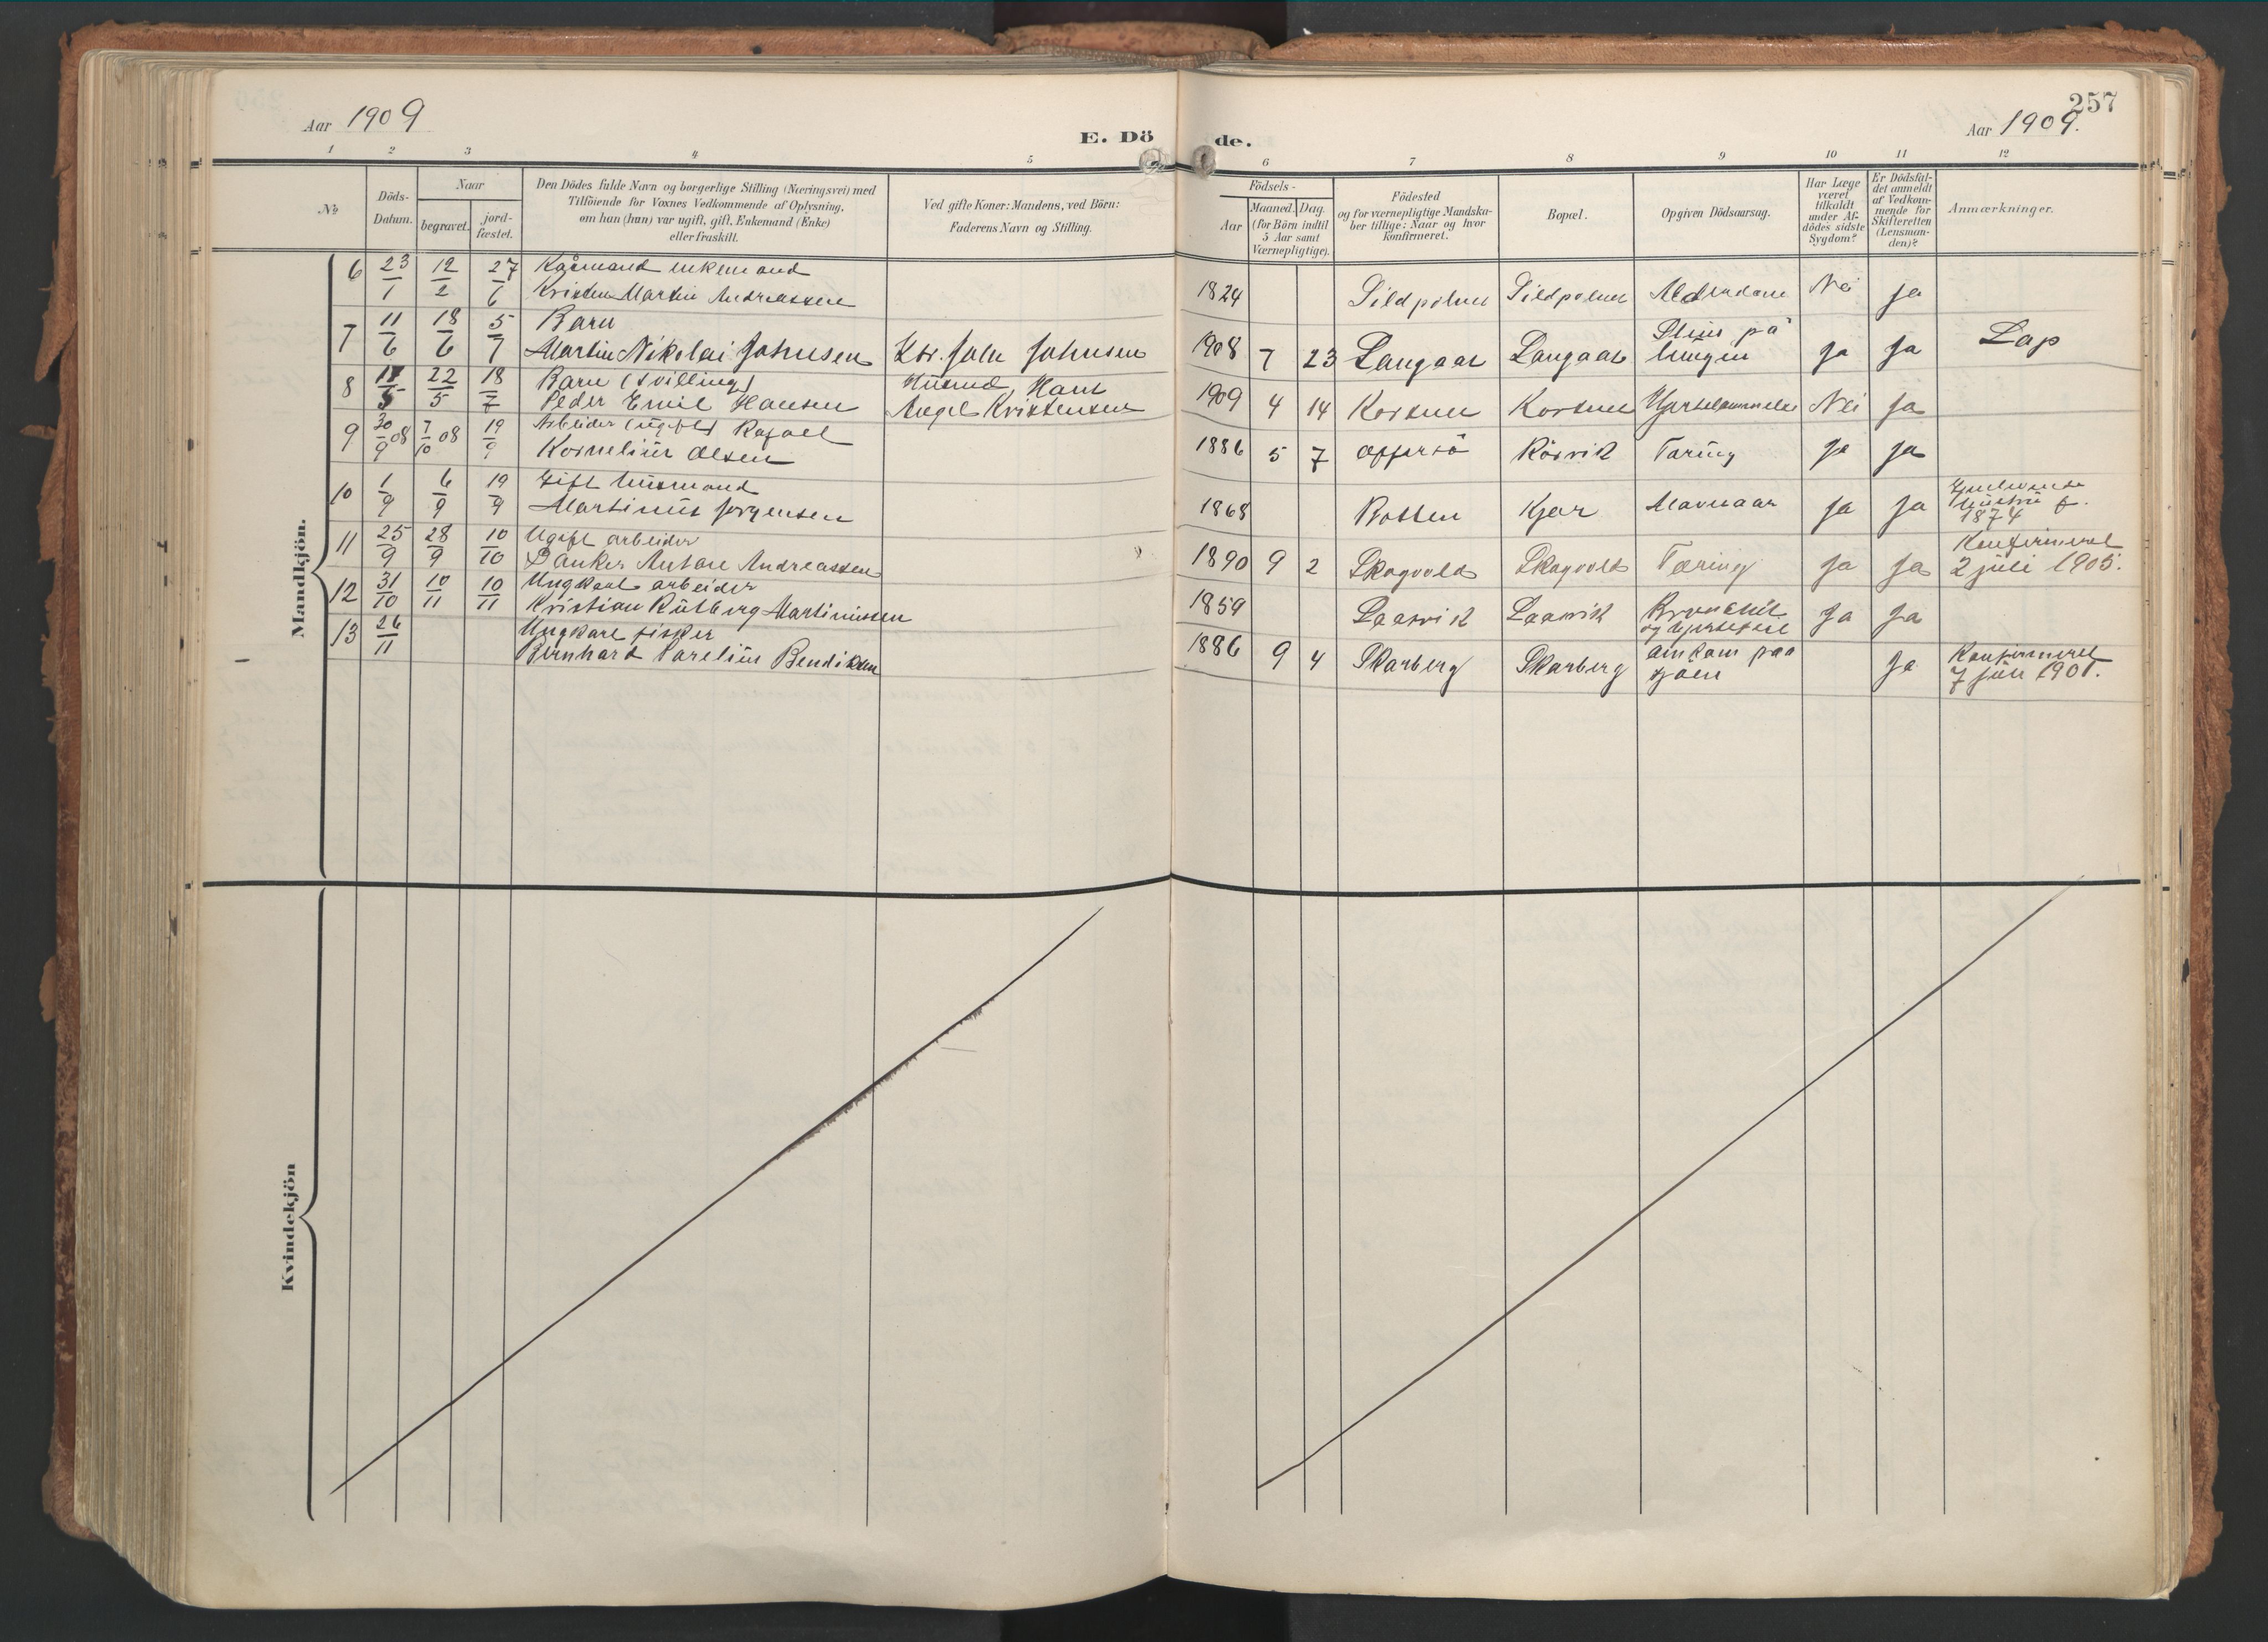 257
Aar 1909
E. Dö de.
Aar 1909.
1 2 3 4 5 6 7 8 9 10 11 12
No
Döds-
Datum.
Naar
begravet.
jord-
fæstet.
Den Dödes fulde Navn og borgerlige Stilling (Næringsvei) med
Tilföiende for Voxnes Vedkommende af Oplysning,
om han (hun) var ugift, gift, Enkemand (Enke)
eller fraskilt.
Ved gifte Koner: Mandens, ved Börn:
Faderens Navn og Stilling.
Födsels-
Aar
Maaned. Dag.
(for Börn indtil
5 Aar samt
Værnepligtige).
Födested
og for værnepligtige Mandska-
ber tillige: Naar og hvor
Konfirmeret.
Bopæl.
Opgiven Dödsaarsag.
Har Læge
været
tilkaldt
under Af-
dödes sidste
Sygdom?
Er Dödsfal-
det anmeldt
af Vedkom-
mende for
Skifteretten
(Lensman-
den)?
Anmærkninger.
Mandkjön.
6 23/1 12/2 27/6 Kaarmand enkemand
Kristen Martin Andreassen
1824 Sildpolnes Sildpolnes Alderdom Nei ja
7 11/6 18/6 5/7 Barn
Martin Nikolai Johnsen Kbr. John Johnsen
1908 7 23 Langaas Langaas Sliim på
lungen ja ja Lap
8 22/5 18/7 Barn (tvilling)
Peder Emil Hansen
Husmd. Hans
Angel Kristensen
1909 4 14 Korsnes Korsnes Hjertelammelse Nei ja
9 30/9 08 7/10 08 19/9 Arbeider (ugift) Rafael
Kornelius Olsen
1886 5 7 Offersö Rörvik Tæring ja ja
10 1/9 6/9 19/9 Gift husmand
Martinus Jörgensen
1868 Botten Kjær Mavesaar ja ja
1874
11 25/9 28/9 10/10 Ugift arbeider
Danker Antone Andreassen
1890 9 2 Skogvold Skogvold Tæring ja ja Konfirmeret
2 juli 1905.
12 31/10 10/11 10/11 Ungkarl arbeider
Kristian Rutberg Martinussen
1859 Laasvik Laasvik Bronchit
og hjertefeil ja ja
13 26/11 Ungkarl fisker
Bernhard Parelius Bendiksen
1886 9 4 Skarberg Skarberg omkom paa
sjöen ja Konfirmeret
7 juli 1901.
Kvindekjön